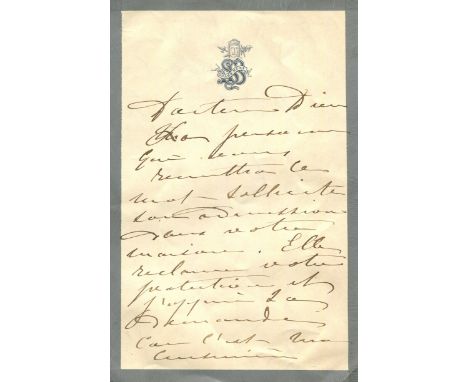 Docteur Dieu
La personne
qui vous
remettra ce
mot sollicite
son admission
dans votre
maison. Elle
réclame votre
protection et
j'appuie sa
demande
car c'est ma
cuisinière